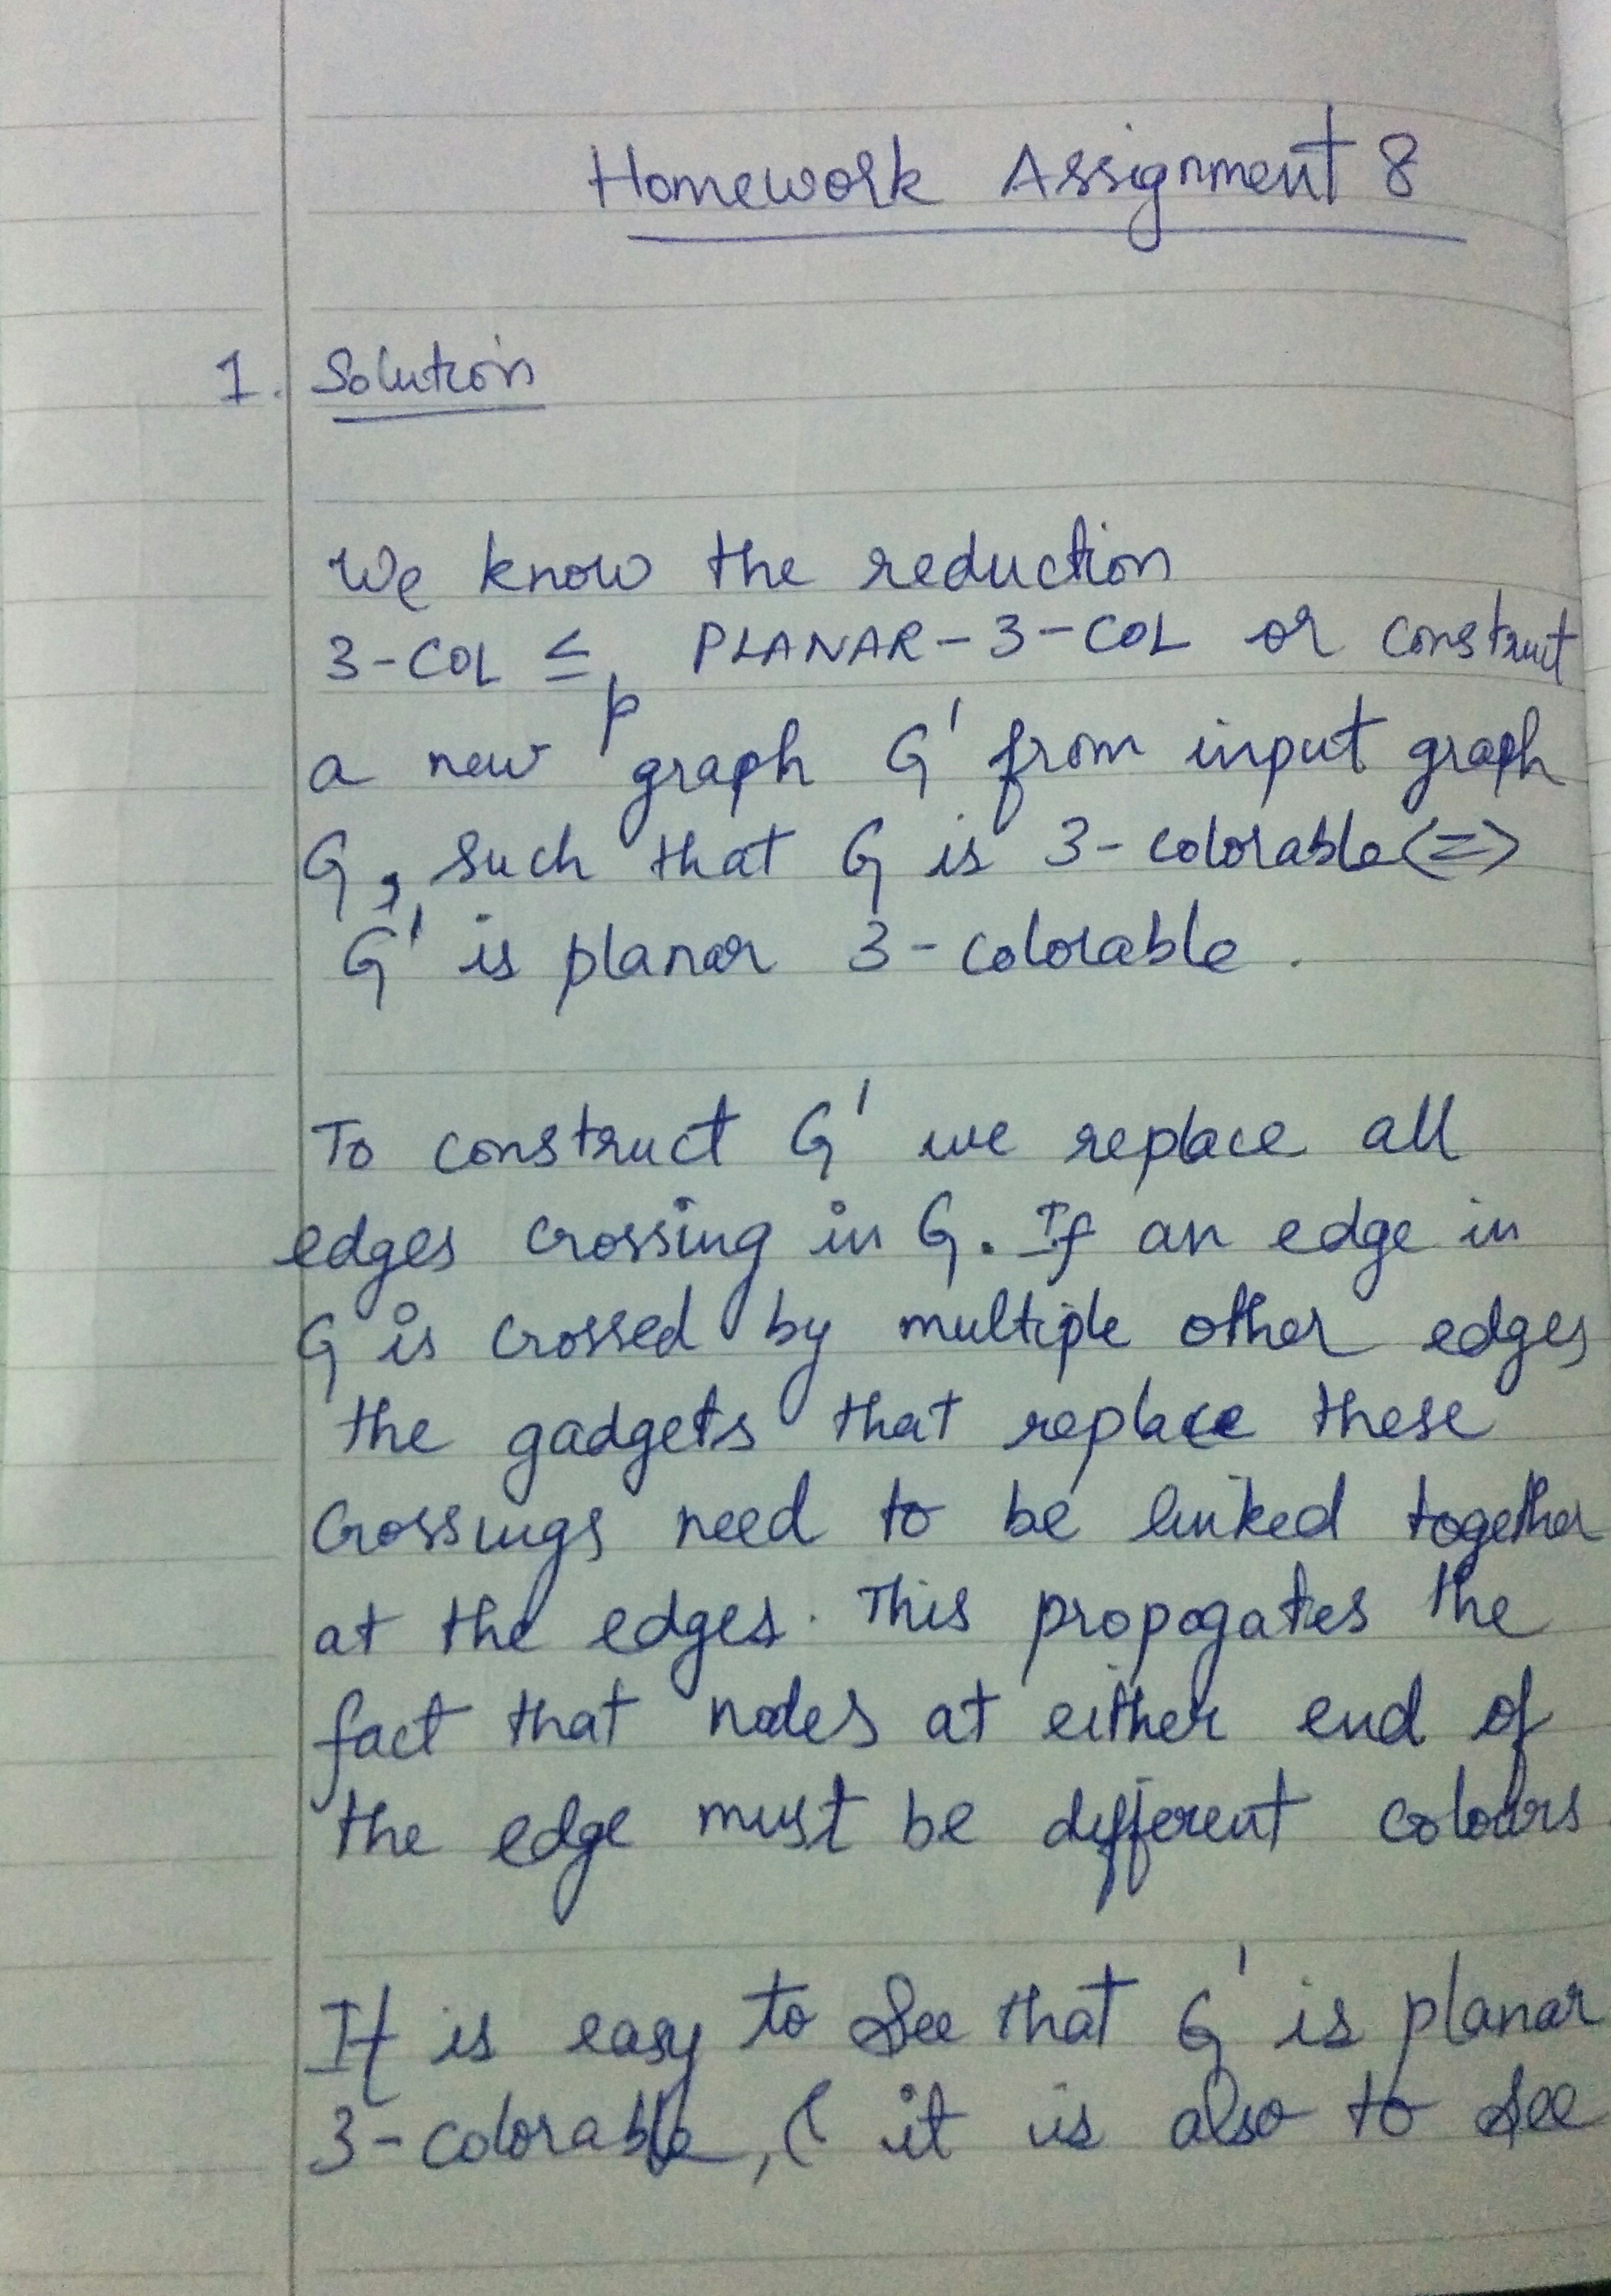 Homework Assignment 8
1. Solution
We know the reduction
3-COL ≤p PLANAR-3-COL or construct
a new graph G' from input graph
G, such that G is 3-colorable <=>
G' is planar 3-colorable.
To construct G' we replace all
edges crossing in G. If an edge in
G is crossed by multiple other edges
the gadgets that replace these
crossings need to be linked together
at the edges. This propogates the
fact that nodes at either end of
the edge must be different colours
It is easy to see that G' is planar
3-colorable, ( it is also to see